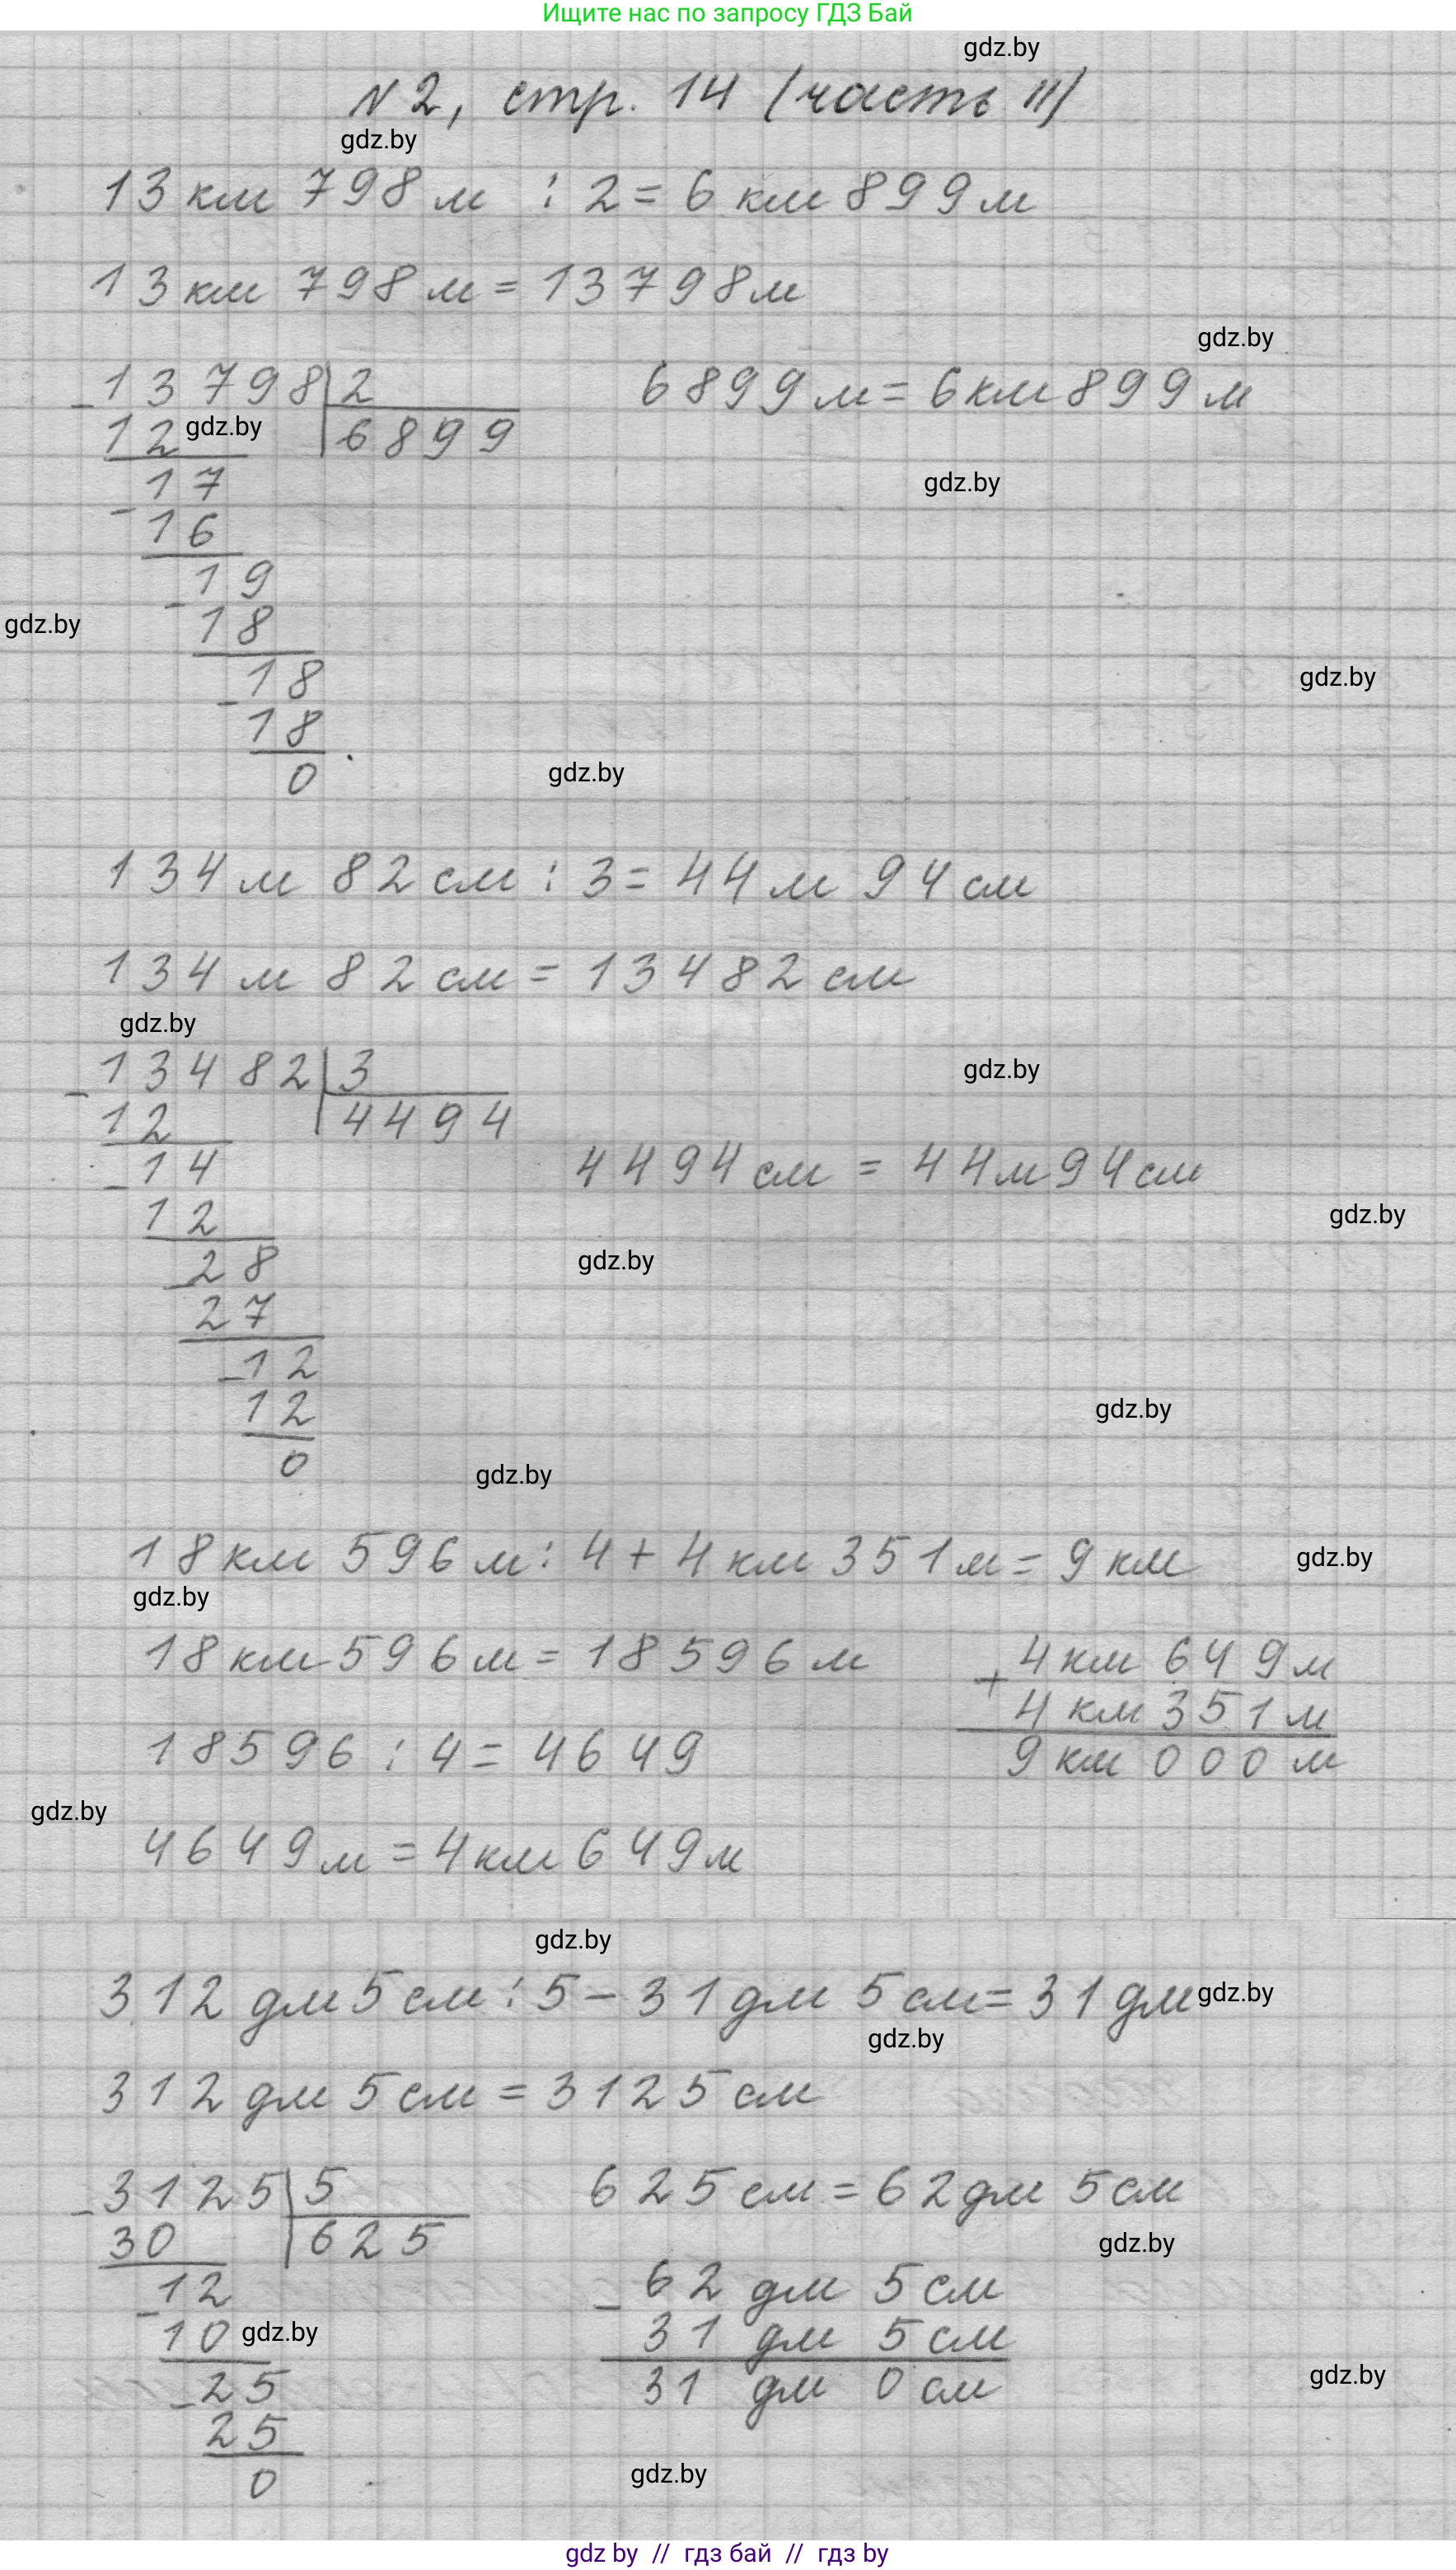 Ищите нас по запросу ГДЗ Бай
gdz.by
N2, стр. 14 (часть II)
gdz.by
13 км 798 м : 2 = 6 км 899 м
13 км 798 м = 13798 м
gdz.by
- 13798 | 2 6899 м = 6 км 899 м
12 gdz.by 6899
- 17 gdz.by
16
- 19
gdz.by 18
- 18 gdz.by
18
0 gdz.by
134 м 82 см : 3 = 44 м 94 см
134 м 82 см = 13482 см
gdz.by
- 13482 | 3 gdz.by
12 4494
- 14 4494 см = 44 м 94 см
12 gdz.by
- 28 gdz.by
27
- 12
12 gdz.by
0 gdz.by
18 км 596 м : 4 + 4 км 351 м = 9 км gdz.by
gdz.by
18 км 596 м = 18596 м + 4 км 649 м
4 км 351 м
18596 : 4 = 4649 9 км 000 м
gdz.by
4649 м = 4 км 649 м
gdz.by
312 дм 5 см : 5 - 31 дм 5 см = 31 дм gdz.by
gdz.by
312 дм 5 см = 3125 см
- 3125 | 5 625 см = 62 дм 5 см
30 625 gdz.by
- 12 - 62 дм 5 см
10 gdz.by 31 дм 5 см
- 25 31 дм 0 см gdz.by
25
0 gdz.by
gdz by // гдз бай // гдз by